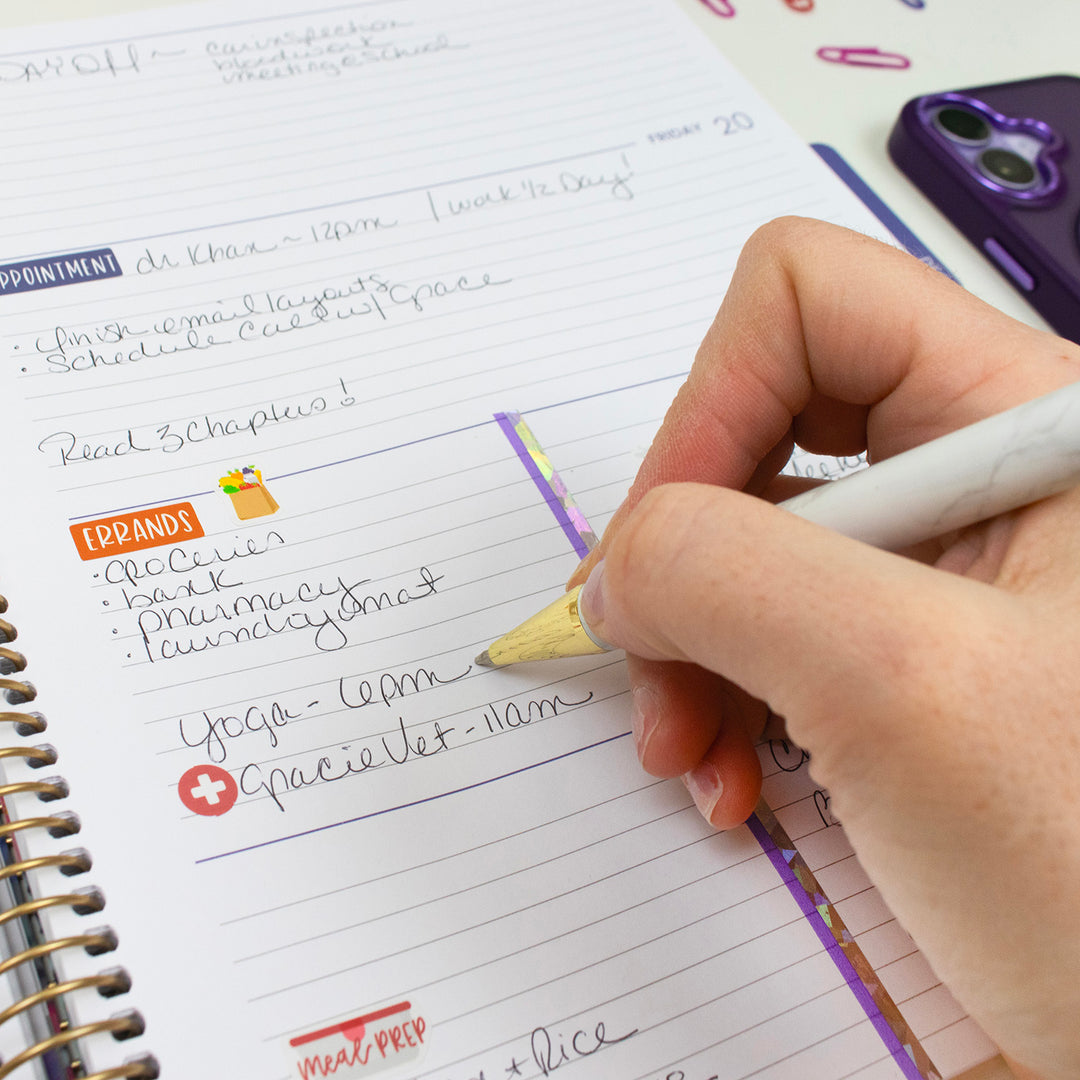 DAY OFF ~ car inspection
bloodwork
meeting @ school
FRIDAY 20
APPOINTMENT dr Khan ~ 12pm / work 1/2 Day!
• finish email layouts
• Schedule Call w/ Grace
Read 3 Chapters!
ERRANDS
• groceries
• bank
• pharmacy
• laundrymat
Yoga - 6pm
Gracie Vet - 11am
meal PREP
+ Rice